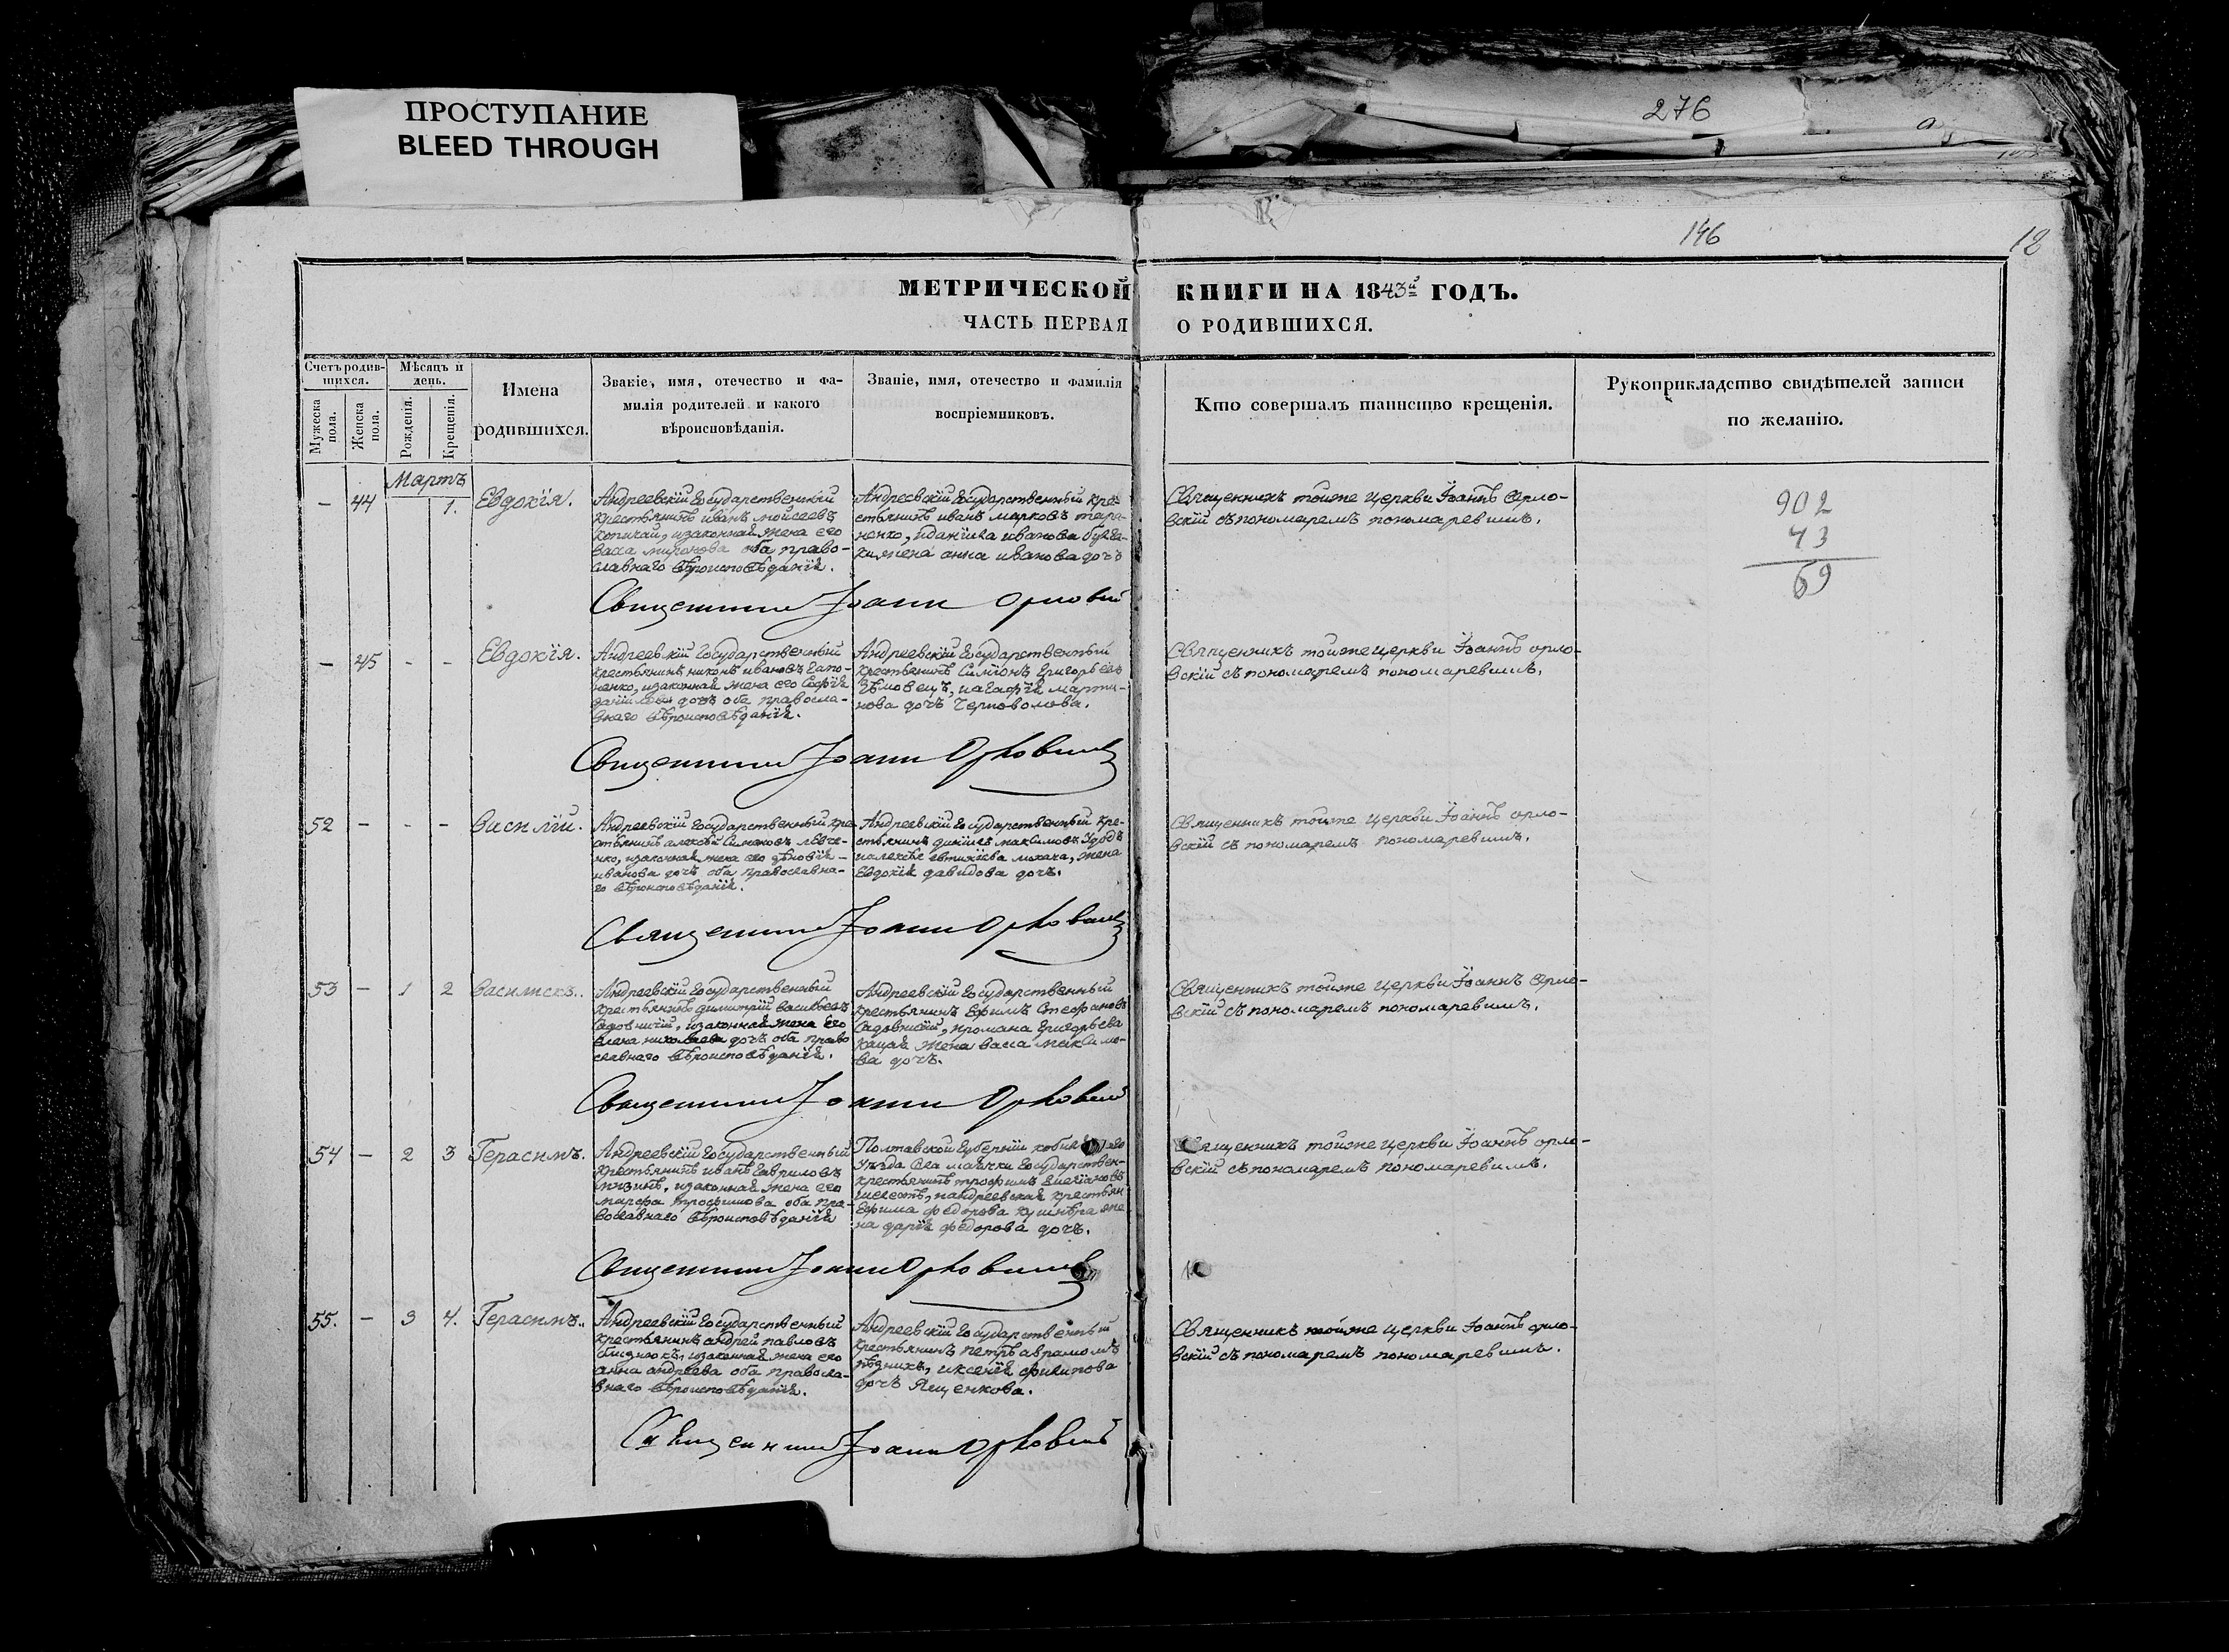 ПРОСТУПАНИЕ
BLEED THROUGH
276
146
12
МЕТРИЧЕСКОЙ КНИГИ НА 1843й ГОДЪ.
ЧАСТЬ ПЕРВАЯ О РОДИВШИХСЯ.
Счетъ родив-
шихся.
Мужеска пола.
Женска пола.
Мѣсяцъ и
день.
Рожденія.
Крещенія.
Имена
родившихся.
Званіе, имя, отечество и фа-
милія родителей и какого
вѣроисповѣданія.
Званіе, имя, отечество и фамилія
воспріемниковъ.
Кто совершалъ таинство крещенія.
Рукоприкладство свидѣтелей записи
по желанію.
Мартъ
— 44 1. Евдокія.
Андреевскій Государственный
крестьянинъ иванъ моисеевъ
изаконная жена его
васса оба право-
славнаго вѣроисповѣданія.
Андреевскій Государственный кре-
стьянинъ иванъ марковъ тара-
ненко, иванова
жена анна иванова дочь
Священникъ тойже церкви Іоаннъ Орло-
вскій съ пономаремъ пономаревимъ.
902
43
69
Священник Іоанн Орловский
— 45 - - Евдокія.
Андреевскій Государственный
крестьянинъ никонъ ивановъ Гапо-
ненко, изаконная жена его Софія
дочь оба правосла-
внаго вѣроисповѣданія.
Андреевскій Государственный
крестьянинъ Симіонъ Григорьевъ
иагафія марти-
нова дочь Черноволова.
Священникъ тойже церкви Іоаннъ орло-
вскій съ пономаремъ пономаревимъ.
Священник Іоанн Орловский
52 - - - Василій.
Андреевскій Государственный кре-
стьянинъ алексѣй Симоновъ левче-
нко, изаконная жена его
иванова дочь оба православна-
го вѣроисповѣданія.
Андреевскій Государственный кре-
стьянинъ максимовъ Удодъ
жена
Евдокія давидова дочь.
Священникъ тойже церкви Іоаннъ орло-
вскій съ пономаремъ пономаревимъ.
Священник Іоанн Орловский
53 — 1 2 Василискъ.
Андреевскій Государственный
крестьянинъ димитрій васильевъ
Садовничій, изаконная жена его
Елена николаева дочь оба право
славнаго вѣроисповѣданія.
Андреевскій Государственный
крестьянинъ Ефимъ Стефановъ
Садовничій, иромана Григорьева
жена васса макси мо-
ва дочь.
Священникъ тойже церкви Іоаннъ Орло-
вскій съ пономаремъ пономаревимъ.
Священник Іоанн Орловский
54 — 2 3 Герасимъ.
Андреевскій Государственный
крестьянинъ иванъ Гавриловъ
изаконная жена его
марфа трофимова оба пра-
вославнаго вѣроисповѣданія
Полтавской Губерніи
уѣзда Села маячки Государствен-
крестьянинъ трофимъ
иандреевская крестьян
Ефима федорова кушнѣра же
на дарія федорова дочь.
ященникъ тойже церкви Іоаннъ орло-
вскій съ пономаремъ пономаревимъ.
Священник Іоанн Орловский
55. — 3 4. Герасимъ.
Андреевскій Государственный
крестьянинъ андрей павловъ
изаконная жена его
анна андреева оба правосла-
внаго вѣроисповѣданія.
Андреевскій Государственный
крестьянинъ петръ
иксенія филипова
дочь Ященкова.
Священникъ тойже церкви Іоаннъ орло-
вскій съ пономаремъ пономаревимъ.
Священник Іоанн Орловский